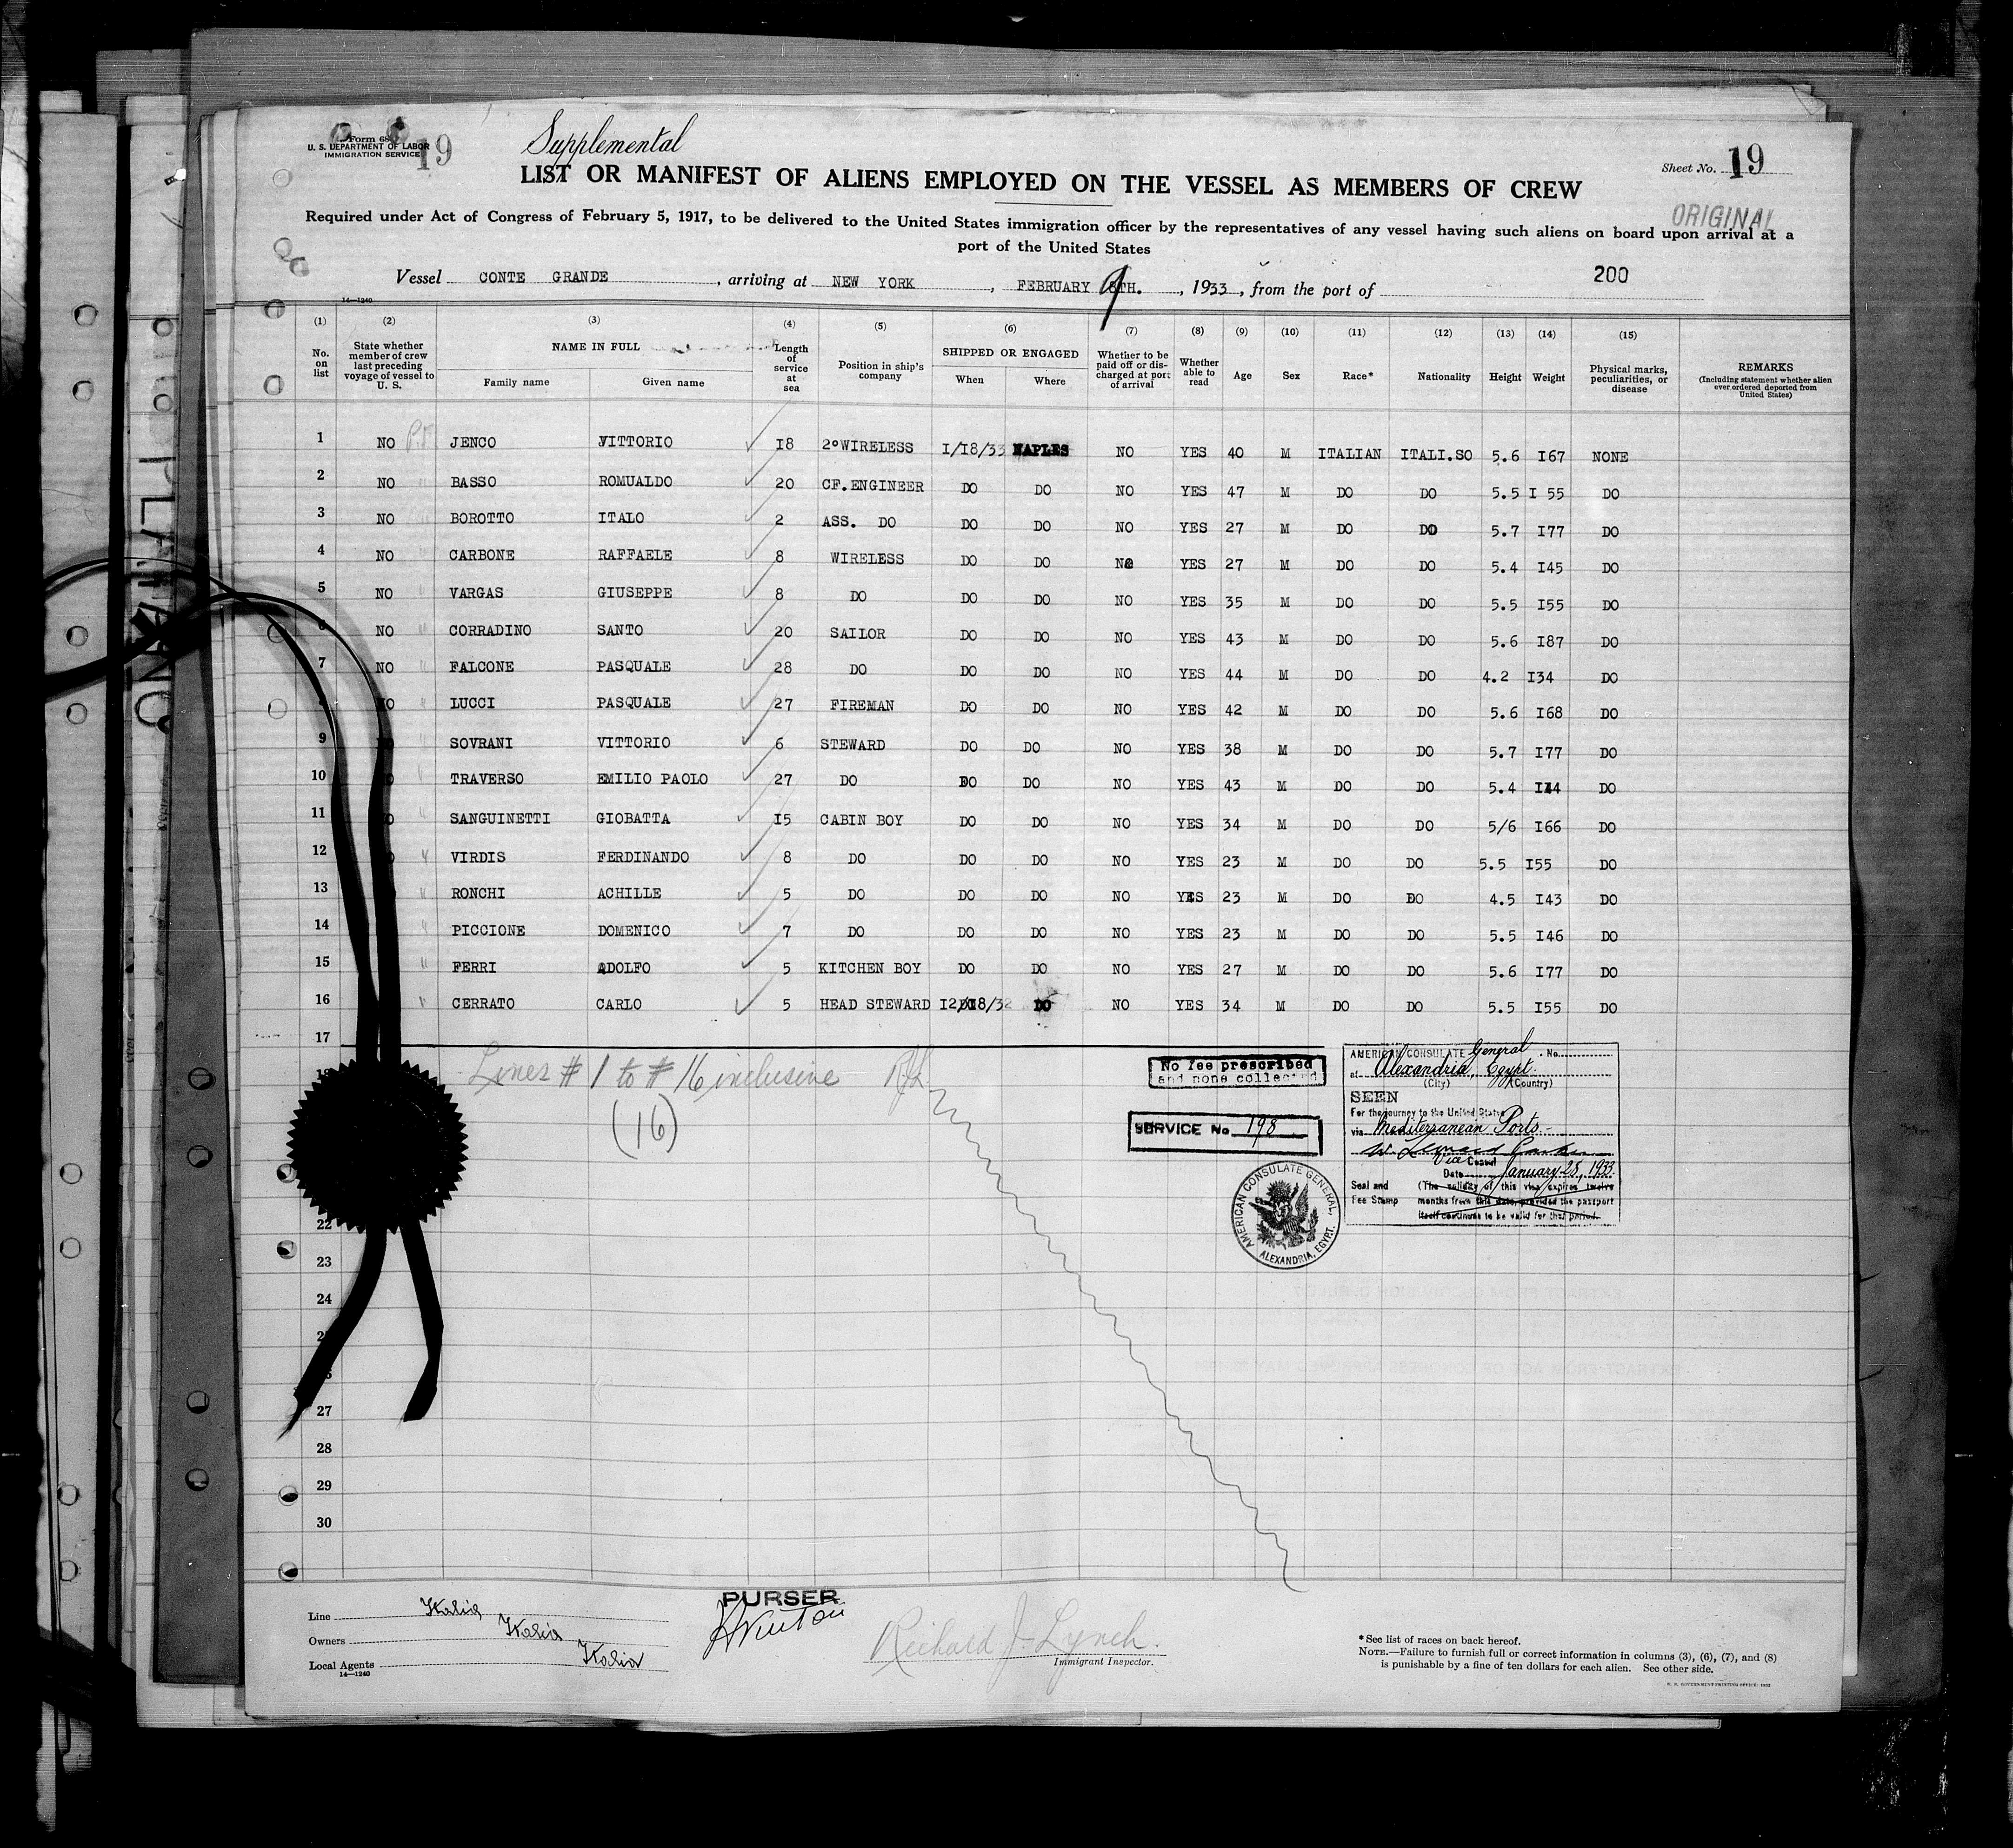 Form 68
U. S. DEPARTMENT OF LABOR
IMMIGRATION SERVICE
19
Supplemental
Sheet No. 19
LIST OR MANIFEST OF ALIENS EMPLOYED ON THE VESSEL AS MEMBERS OF CREW
ORIGINAL
Required under Act of Congress of February 5, 1917, to be delivered to the United States immigration officer by the representatives of any vessel having such aliens on board upon arrival at a
port of the United States
200
Vessel CONTE GRANDE, arriving at NEW YORK, FEBRUARY 9TH., 1933, from the port of
14—1240
(1) (2) (3) (4) (5) (6) (7) (8) (9) (10) (11) (12) (13) (14) (15)
No. on list State whether member of crew last preceding voyage of vessel to U. S. NAME IN FULL Family name Given name Length of service at sea Position in ship's company SHIPPED OR ENGAGED When Where Whether to be paid off or discharged at port of arrival Whether able to read Age Sex Race* Nationality Height Weight Physical marks, peculiarities, or disease REMARKS (Including statement whether alien ever ordered deported from United States)
1 NO P.F. JENCO VITTORIO 18 2º WIRELESS 1/18/33 NAPLES NO YES 40 M ITALIAN ITALI.SO 5.6 167 NONE
2 NO " BASSO ROMUALDO 20 CF.ENGINEER DO DO NO YES 47 M DO DO 5.5 1 55 DO
3 NO " BOROTTO ITALO 2 ASS. DO DO DO NO YES 27 M DO DO 5.7 177 DO
4 NO " CARBONE RAFFAELE 8 WIRELESS DO DO NO YES 27 M DO DO 5.4 145 DO
5 NO " VARGAS GIUSEPPE 8 DO DO DO NO YES 35 M DO DO 5.5 155 DO
6 NO " CORRADINO SANTO 20 SAILOR DO DO NO YES 43 M DO DO 5.6 187 DO
7 NO " FALCONE PASQUALE 28 DO DO DO NO YES 44 M DO DO 4.2 134 DO
NO " LUCCI PASQUALE 27 FIREMAN DO DO NO YES 42 M DO DO 5.6 168 DO
9 " SOVRANI VITTORIO 6 STEWARD DO DO NO YES 38 M DO DO 5.7 177 DO
10 " TRAVERSO EMILIO PAOLO 27 DO DO DO NO YES 43 M DO DO 5.4 144 DO
11 " SANGUINETTI GIOBATTA 15 CABIN BOY DO DO NO YES 34 M DO DO 5/6 166 DO
12 " VIRDIS FERDINANDO 8 DO DO DO NO YES 23 M DO DO 5.5 155 DO
13 " RONCHI ACHILLE 5 DO DO DO NO YES 23 M DO DO 4.5 143 DO
14 " PICCIONE DOMENICO 7 DO DO DO NO YES 23 M DO DO 5.5 146 DO
15 " FERRI ADOLFO 5 KITCHEN BOY DO DO NO YES 27 M DO DO 5.6 177 DO
16 " CERRATO CARLO 5 HEAD STEWARD 12/18/32 DO NO YES 34 M DO DO 5.5 155 DO
17
18 Lines # 1 to # 16 inclusive RJL
(16)
No fee prescribed
and none collected
SERVICE No 198
AMERICAN CONSULATE General, No.
at Alexandria, Egypt
(City) (Country)
SEEN
For the journey to the United States
via Mediterranean Ports
Vice Consul
Date January 28, 1933
Seal and Fee Stamp
(The validity of this visa expires twelve
months from this date, provided the passport
itself continues to be valid for that period.
AMERICAN CONSULATE GENERAL, ALEXANDRIA, EGYPT.
22
23
24
27
28
29
30
Line Italia
Owners Italia
Local Agents Italia
14—1240
PURSER
Richard J. Lynch.
Immigrant Inspector.
*See list of races on back hereof.
NOTE.—Failure to furnish full or correct information in columns (3), (6), (7), and (8)
is punishable by a fine of ten dollars for each alien. See other side.
U. S. GOVERNMENT PRINTING OFFICE: 1932